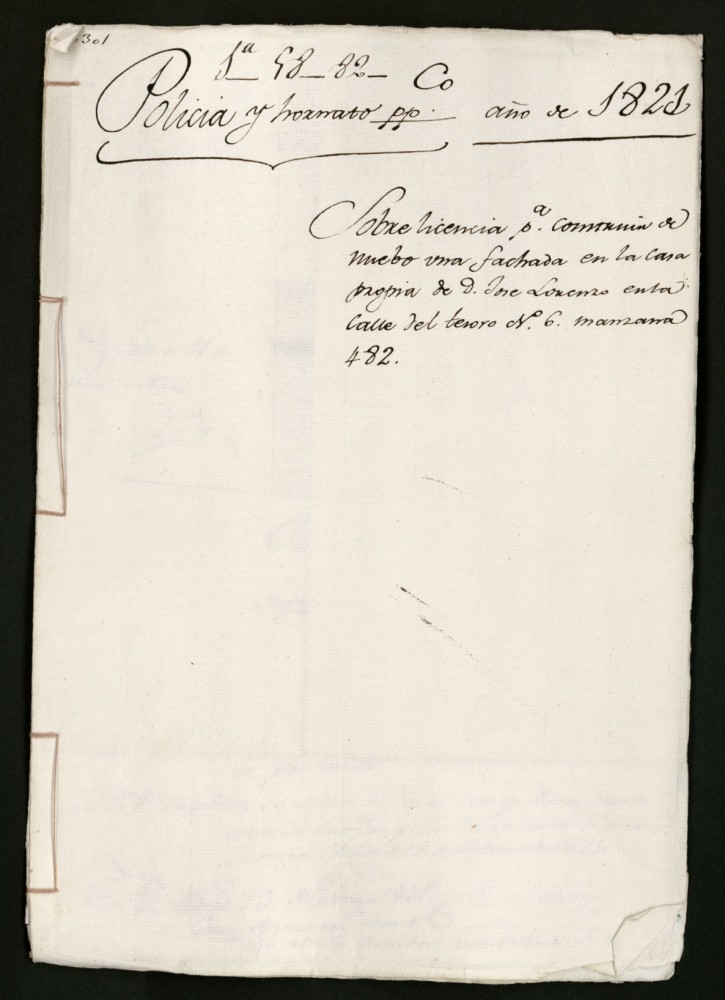 301
1ª 58-82-
Co
Policia y hornato pp. año de 1821
Sobre licencia p.ª construir de
nuebo una fachada en la Casa
propia de D. Jose Lorenzo en la
Calle del tesoro Nº. 6. manzana
482.